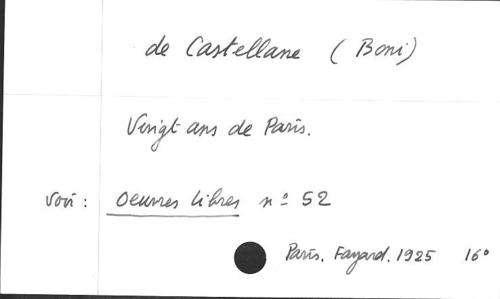 de Castellane (Boni)
Vingt ans de Paris.
Voir : Oeuvres libres n° 52
Paris. Fayard. 1925 16°